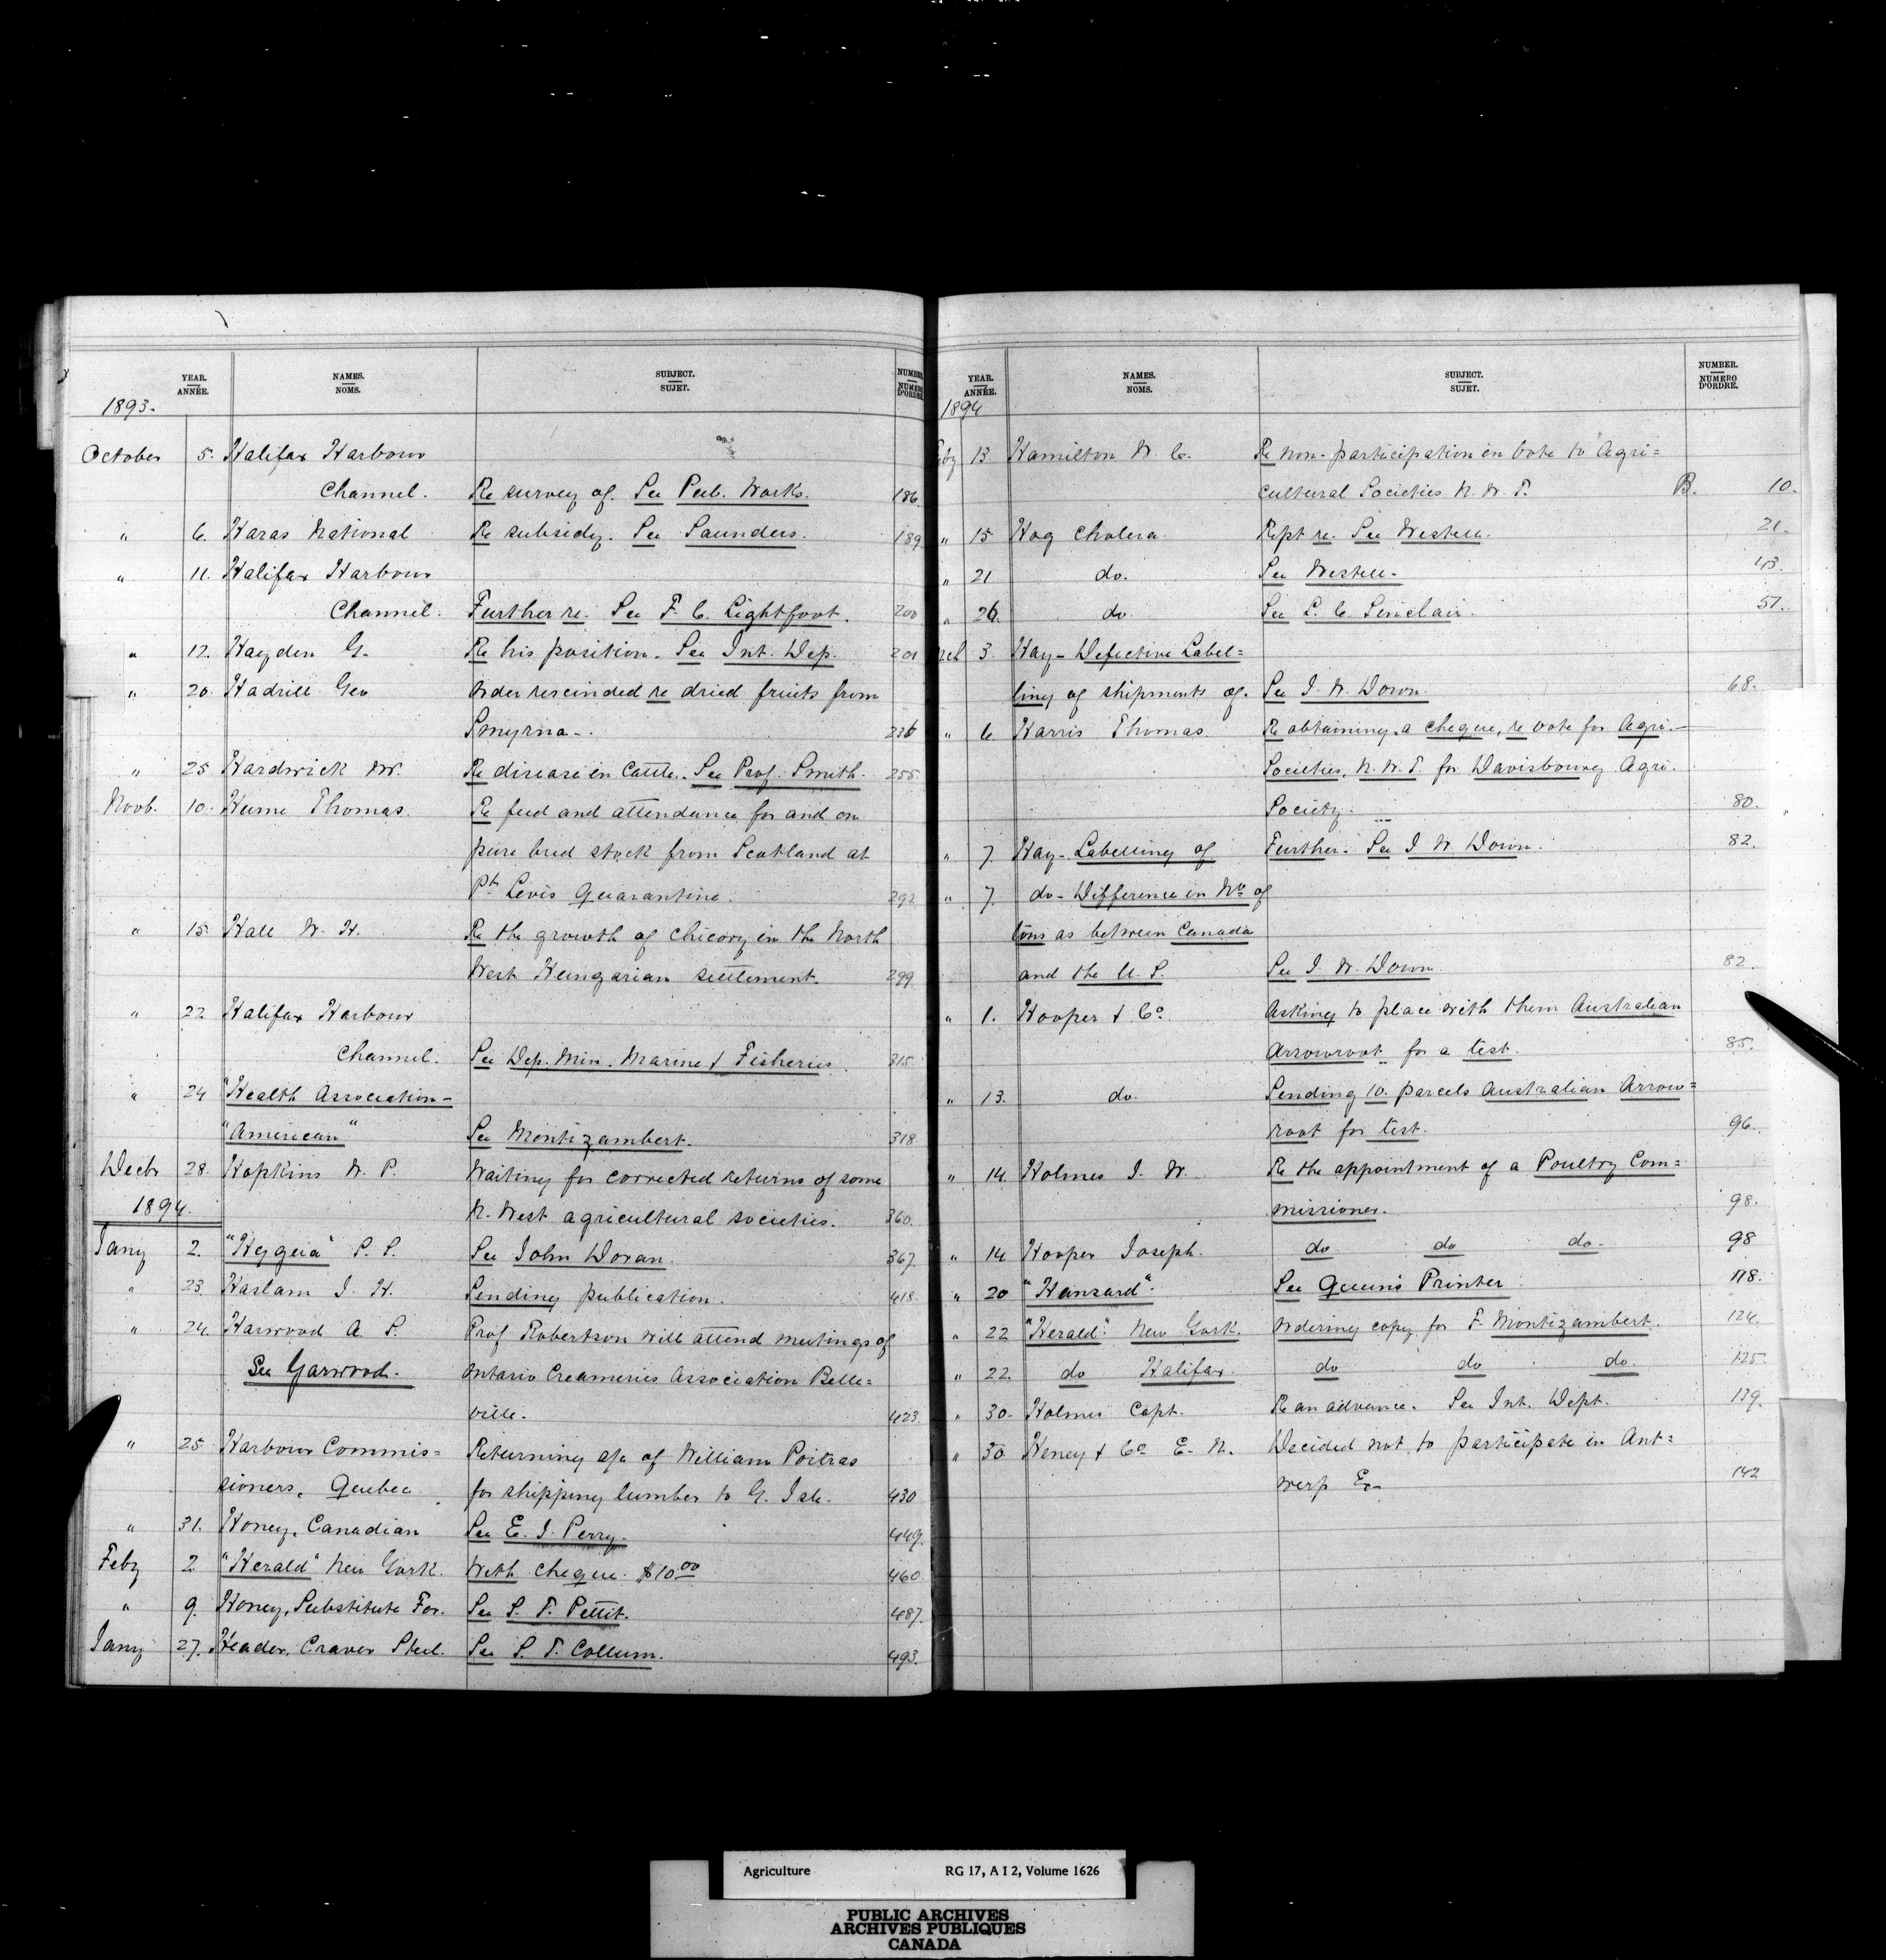 YEAR.
ANNÉE.
NAMES.
NOMS.
SUBJECT.
SUJET.
NUMBER
NUMÉRO
D'ORDRE
1893.
October 5. Halifax Harbour
Channel. Re survey of. See Pub. Works. 186
" 6. Haras National Re subsidy. See Saunders. 189
" 11. Halifax Harbour
Channel. Further re. See F. C. Lightfoot. 200
" 12. Hayden G. Re his position. See Int. Dep. 201
" 20. Hadrill Geo Order rescinded re dried fruits from
Smyrna. 236
" 25 Hardwick W. Re disease in Cattle. See Prof. Smith. 255
Novb. 10. Hume Thomas. Re feed and attendance for and on
pure bred stock from Scotland at
Pt Levis Quarantine. 292
" 15. Hall W. H. Re the growth of chicory in the North
West Hungarian settlement. 299
" 22 Halifax Harbour
Channel. See Dep. Min. Marine & Fisheries. 315
" 24 "Health Association-
"American" See Montizambert. 318
Decbr 28. Hopkins W. P. Waiting for corrected returns of some
1894. N. West agricultural societies. 360.
Jany 2. "Hygeia" S. S. See John Doran. 367.
" 23. Haslam J. H. Sending publication. 418.
" 24. Harwood A. P. Prof Robertson will attend meetings of
See Garwood. Ontario Creameries Association Belle=
ville. 423.
" 25 Harbour Commis=
Returning a/c of William Poitras
sioners, Quebec for shipping lumber to G. Isle. 430
" 31. Honey, Canadian See E. J. Perry. 449.
Feby 2 "Herald" New York. With cheque. $10 00 460
" 9. Honey, Substitute For. See S. T. Pettit. 487.
Jany 27. Header, Craver Steel. See S. T. Collum. 493.
YEAR.
ANNÉE.
NAMES.
NOMS.
SUBJECT.
SUJET.
NUMBER.
NUMÉRO
D'ORDRE.
1894
Feby 13 Hamilton W. C. Re non-participation in vote to Agri=
cultural Societies N. W. T. B. 10.
" 15 Hog Cholera Rept re. See Westell. 21.
" 21 do. See Westell. 43.
" 26. do See L. C. Sinclair. 51.
rch 3. Hay - Defective Label=
ling of shipments of. See J. W. Down. 68.
" 6. Harris Thomas. Re obtaining a cheque, re vote for Agri.
Societies, N. W. T. for Davisbourg Agri.
Society. 80.
" 7. Hay - Labelling of Further. See J. W. Down. 82.
" 7. do - Difference in No of
tons as between Canada
and the U. S. See J. W. Down 82.
" 1. Hooper & Co. Asking to place with them Australian
Arrowroot for a test. 85.
" 13. do. Sending 10. parcels Australian Arrow=
root for test. 96.
" 14. Holmes J. W. Re the appointment of a Poultry Com=
missioner. 98.
" 14 Hooper Joseph. do do do. 98
" 20 "Hansard". See Queen's Printer 118.
" 22 "Herald". New York. Ordering copy for F. Montizambert. 124.
" 22. do Halifax. do do do. 125.
" 30. Holmes Capt. Re an advance. See Int. Dept. 139.
" 30 Heney & Co E. N. Decided not to participate in Ant=
werp Ex- 142
Agriculture RG 17, A I 2, Volume 1626
PUBLIC ARCHIVES
ARCHIVES PUBLIQUES
CANADA